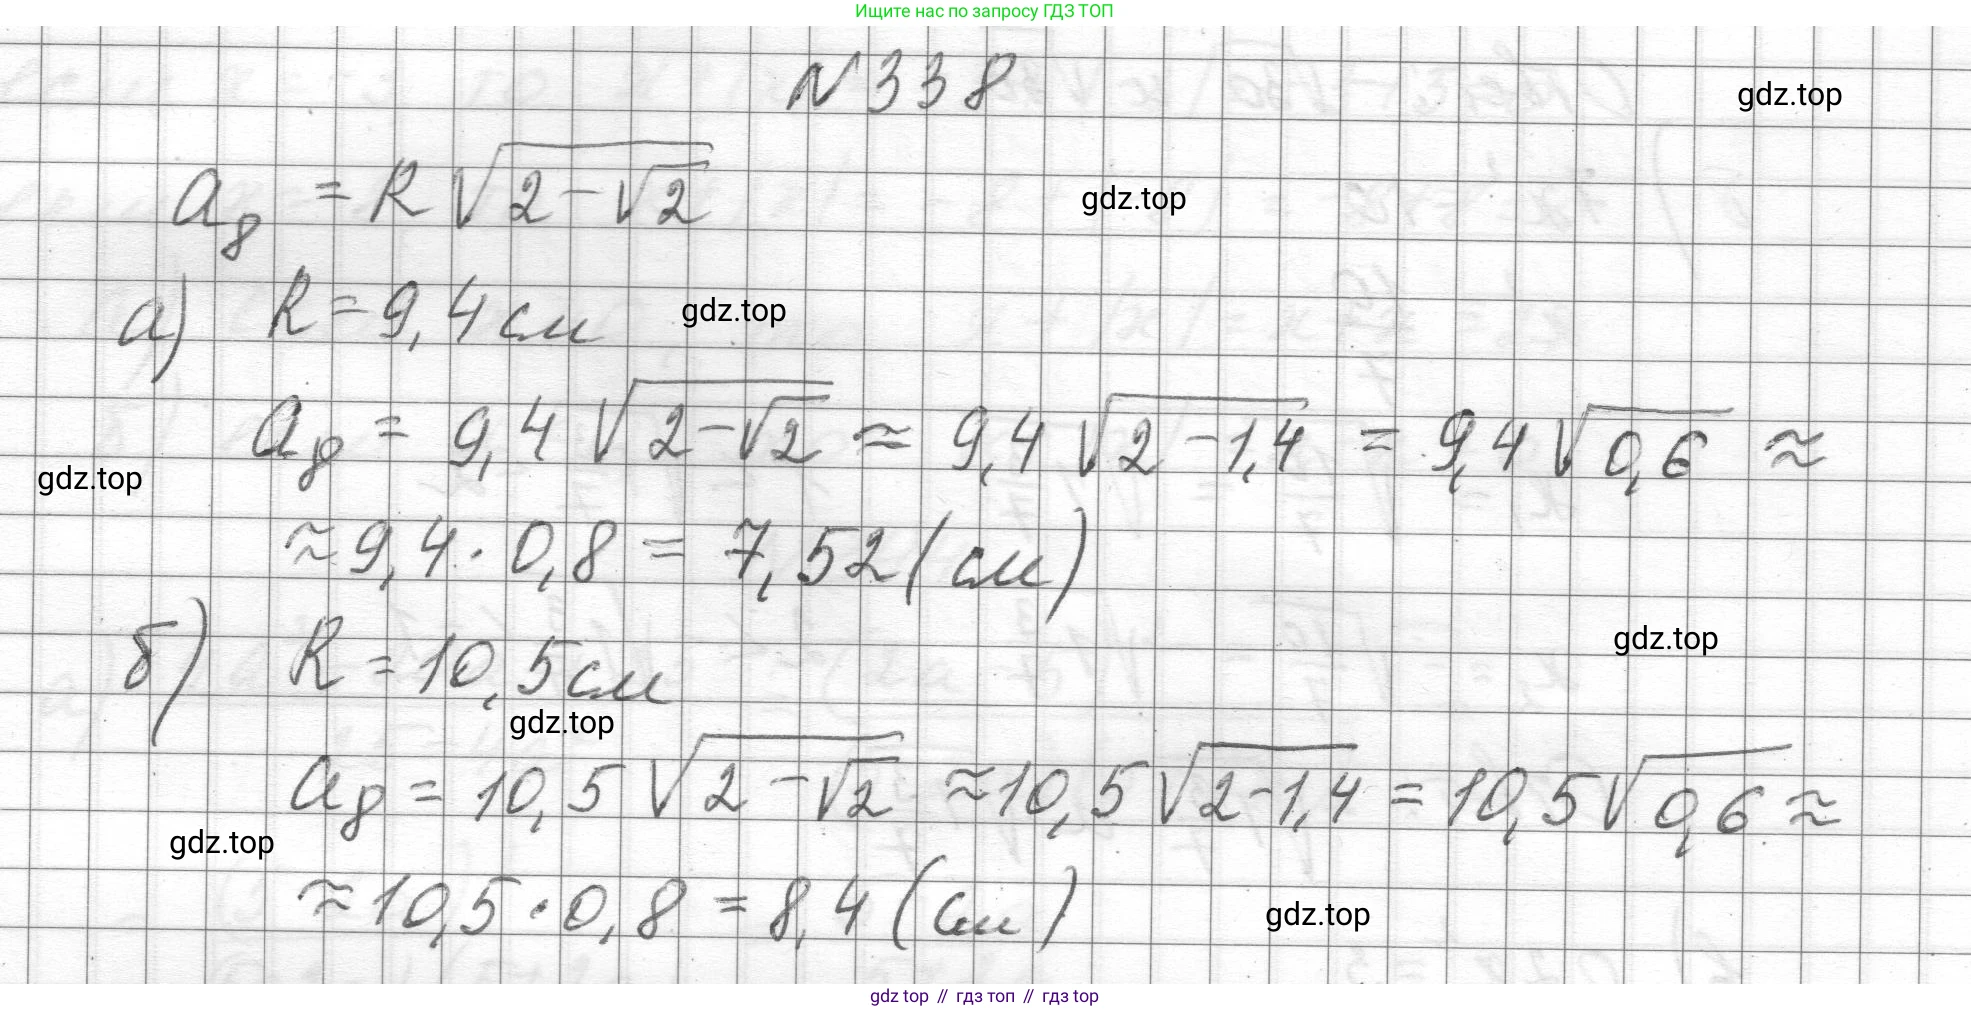 Ищите нас по запросу ГДЗ ТОП
N338
gdz.top
a₈ = R√(2-√2)
gdz.top
а) R = 9,4 см
gdz.top
a₈ = 9,4√(2-√2) ≈ 9,4√(2-1,4) = 9,4√0,6 ≈
gdz.top
≈ 9,4 · 0,8 = 7,52 (см)
gdz.top
б) R = 10,5 см
gdz.top
a₈ = 10,5√(2-√2) ≈ 10,5√(2-1,4) = 10,5√0,6 ≈
gdz.top
≈ 10,5 · 0,8 = 8,4 (см)
gdz.top
gdz top // гдз топ // гдз top